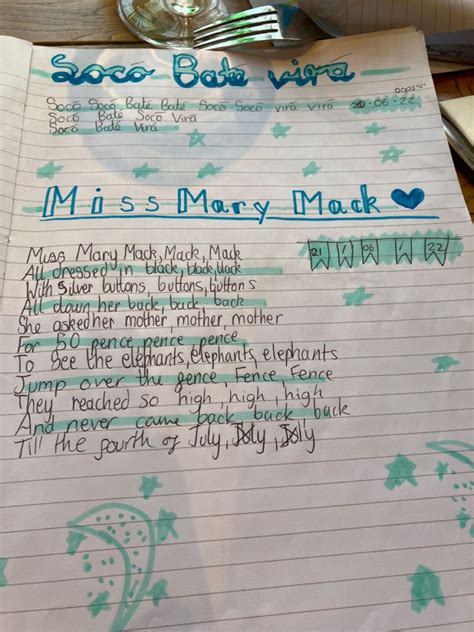 Socō Batē virā
Socō Socō Batē Batē Socō Socō virā virā
oops:v:
20.06.22
Socō Batē Socō Virā
Socō Batē Virā
Miss Mary Mack
21 / 06 / 22
Miss Mary Mack, Mack, Mack
All dressed in black, black, black
With silver buttons, buttons, buttons
All down her back, back, back
She asked her mother, mother, mother
For 50 pence, pence, pence
To see the elephants, elephants, elephants
Jump over the gence, Fence, Fence
They reached so high, high, high
And never came back back back
Till the fourth of July, July, July